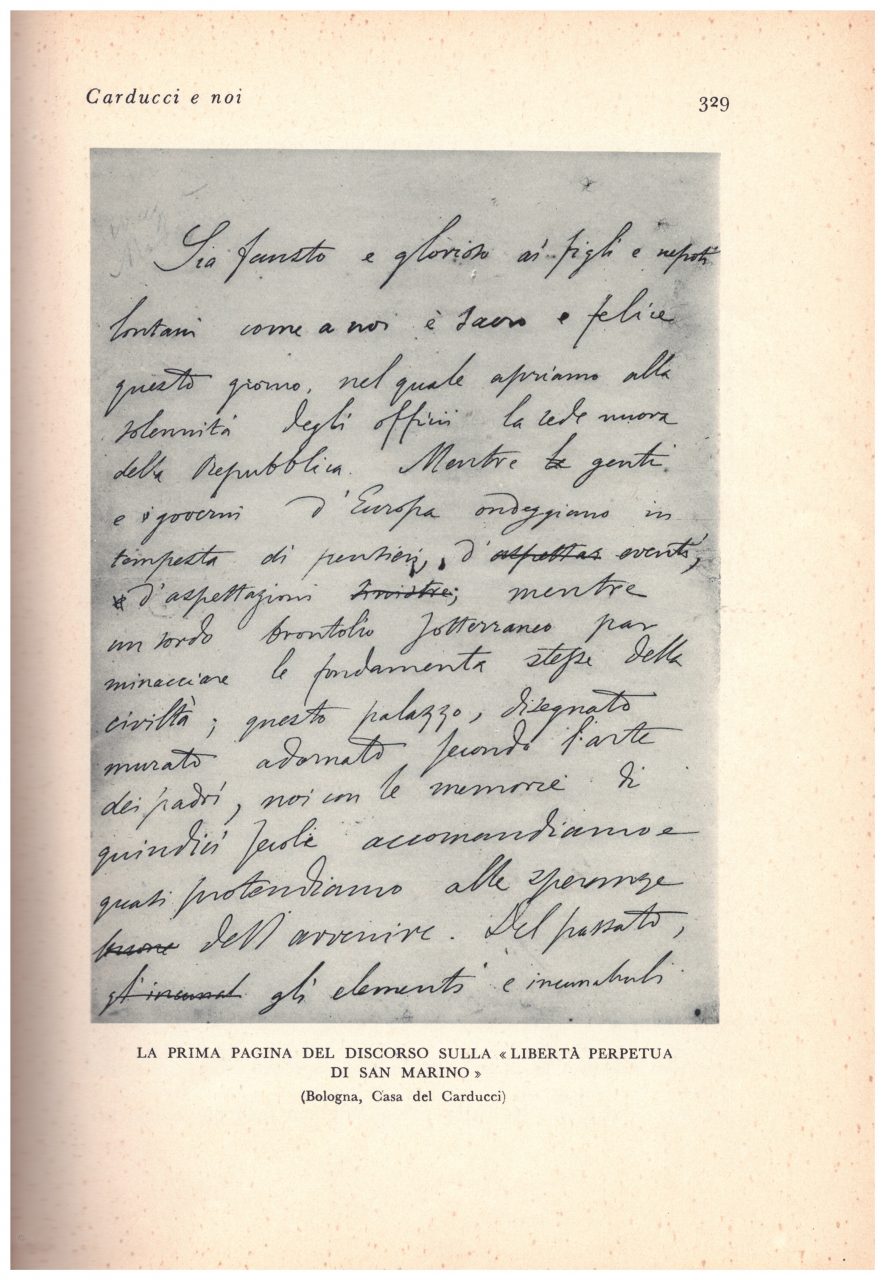 Carducci e noi
329
Sia fausto e glorioso ai figli e nepoti
lontani come a noi è sacro e felice
questo giorno, nel quale apriamo alla
solennità degli offici la sede nuova
della Repubblica. Mentre le genti
e i governi d'Europa ondeggiano in
tempesta di pensieri, d'aspettaz eventi,
e d'aspettazioni sinistre; mentre
un sordo brontolio sotterraneo par
minacciare le fondamenta stesse della
civiltà; questo palazzo, disegnato
murato adornato secondo l'arte
dei padri, noi con le memorie di
quindici secoli accomandiamo e
quasi protendiamo alle speranze
buone dell'avvenire. Del passato,
gl'incunab gli elementi e incunabuli
LA PRIMA PAGINA DEL DISCORSO SULLA « LIBERTÀ PERPETUA
DI SAN MARINO »
(Bologna, Casa del Carducci)